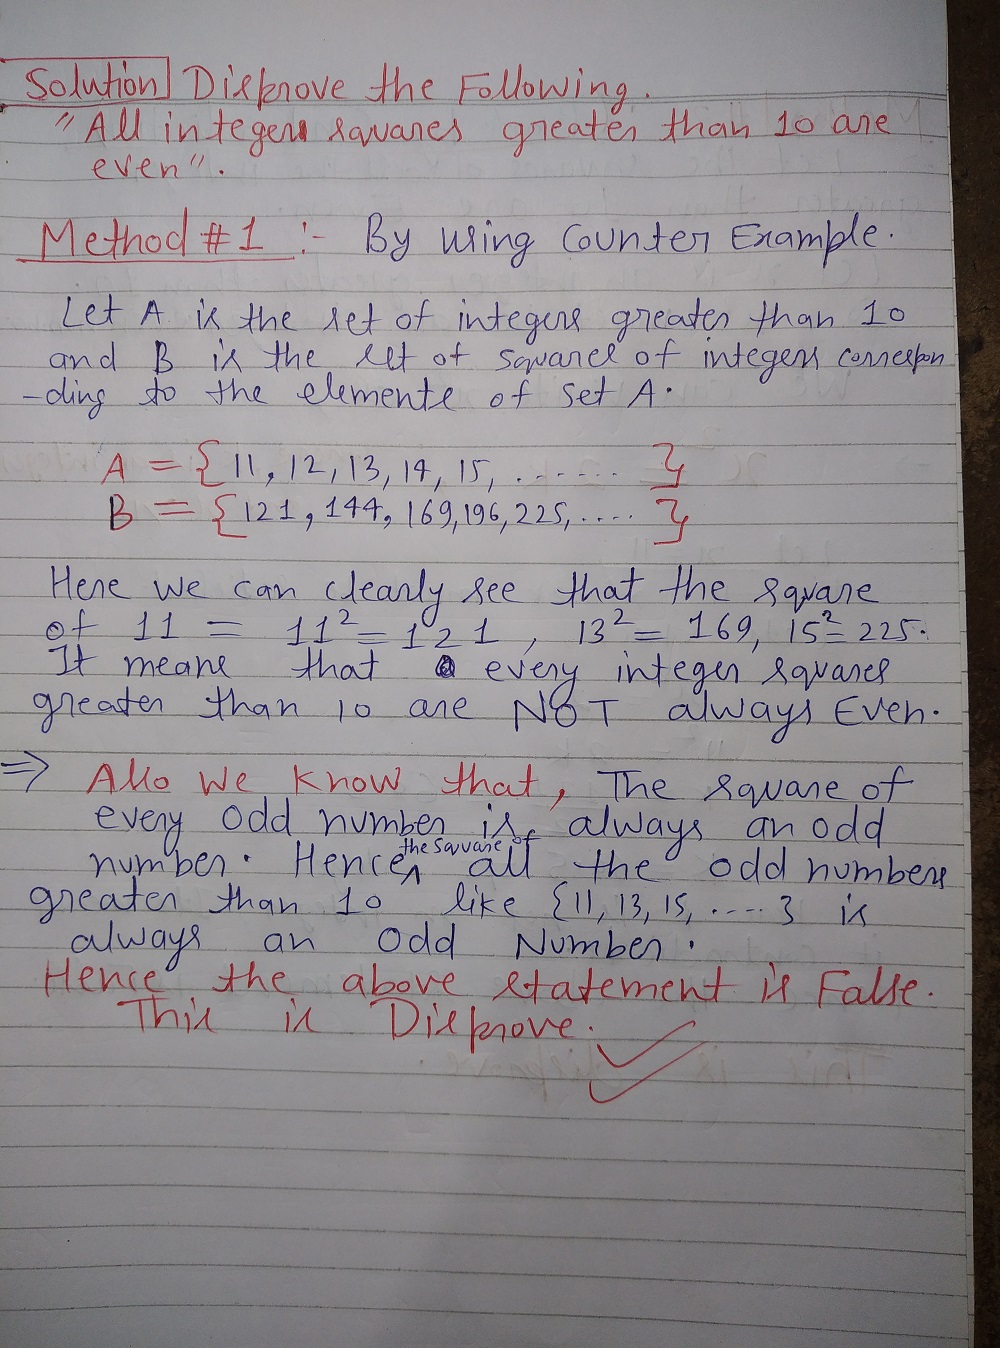 Solution Disprove the Following.
"All integers squares greater than 10 are
even".
Method #1 :- By using Counter Example.
Let A is the set of integers greater than 10
and B is the set of squares of integers correspon
-ding to the elements of set A.
A = {11, 12, 13, 14, 15, ...... }
B = {121, 144, 169, 196, 225, .... }
Here we can clearly see that the square
of 11 = 11² = 121 , 13² = 169, 15² = 225.
It means that every integer squares
greater than 10 are NOT always Even.
⇒ Also we know that, The square of
every odd number is always an odd
number. Hence, the square of all the odd numbers
greater than 10 like {11, 13, 15, ....} is
always an odd Number.
Hence the above statement is False.
This is Disprove.